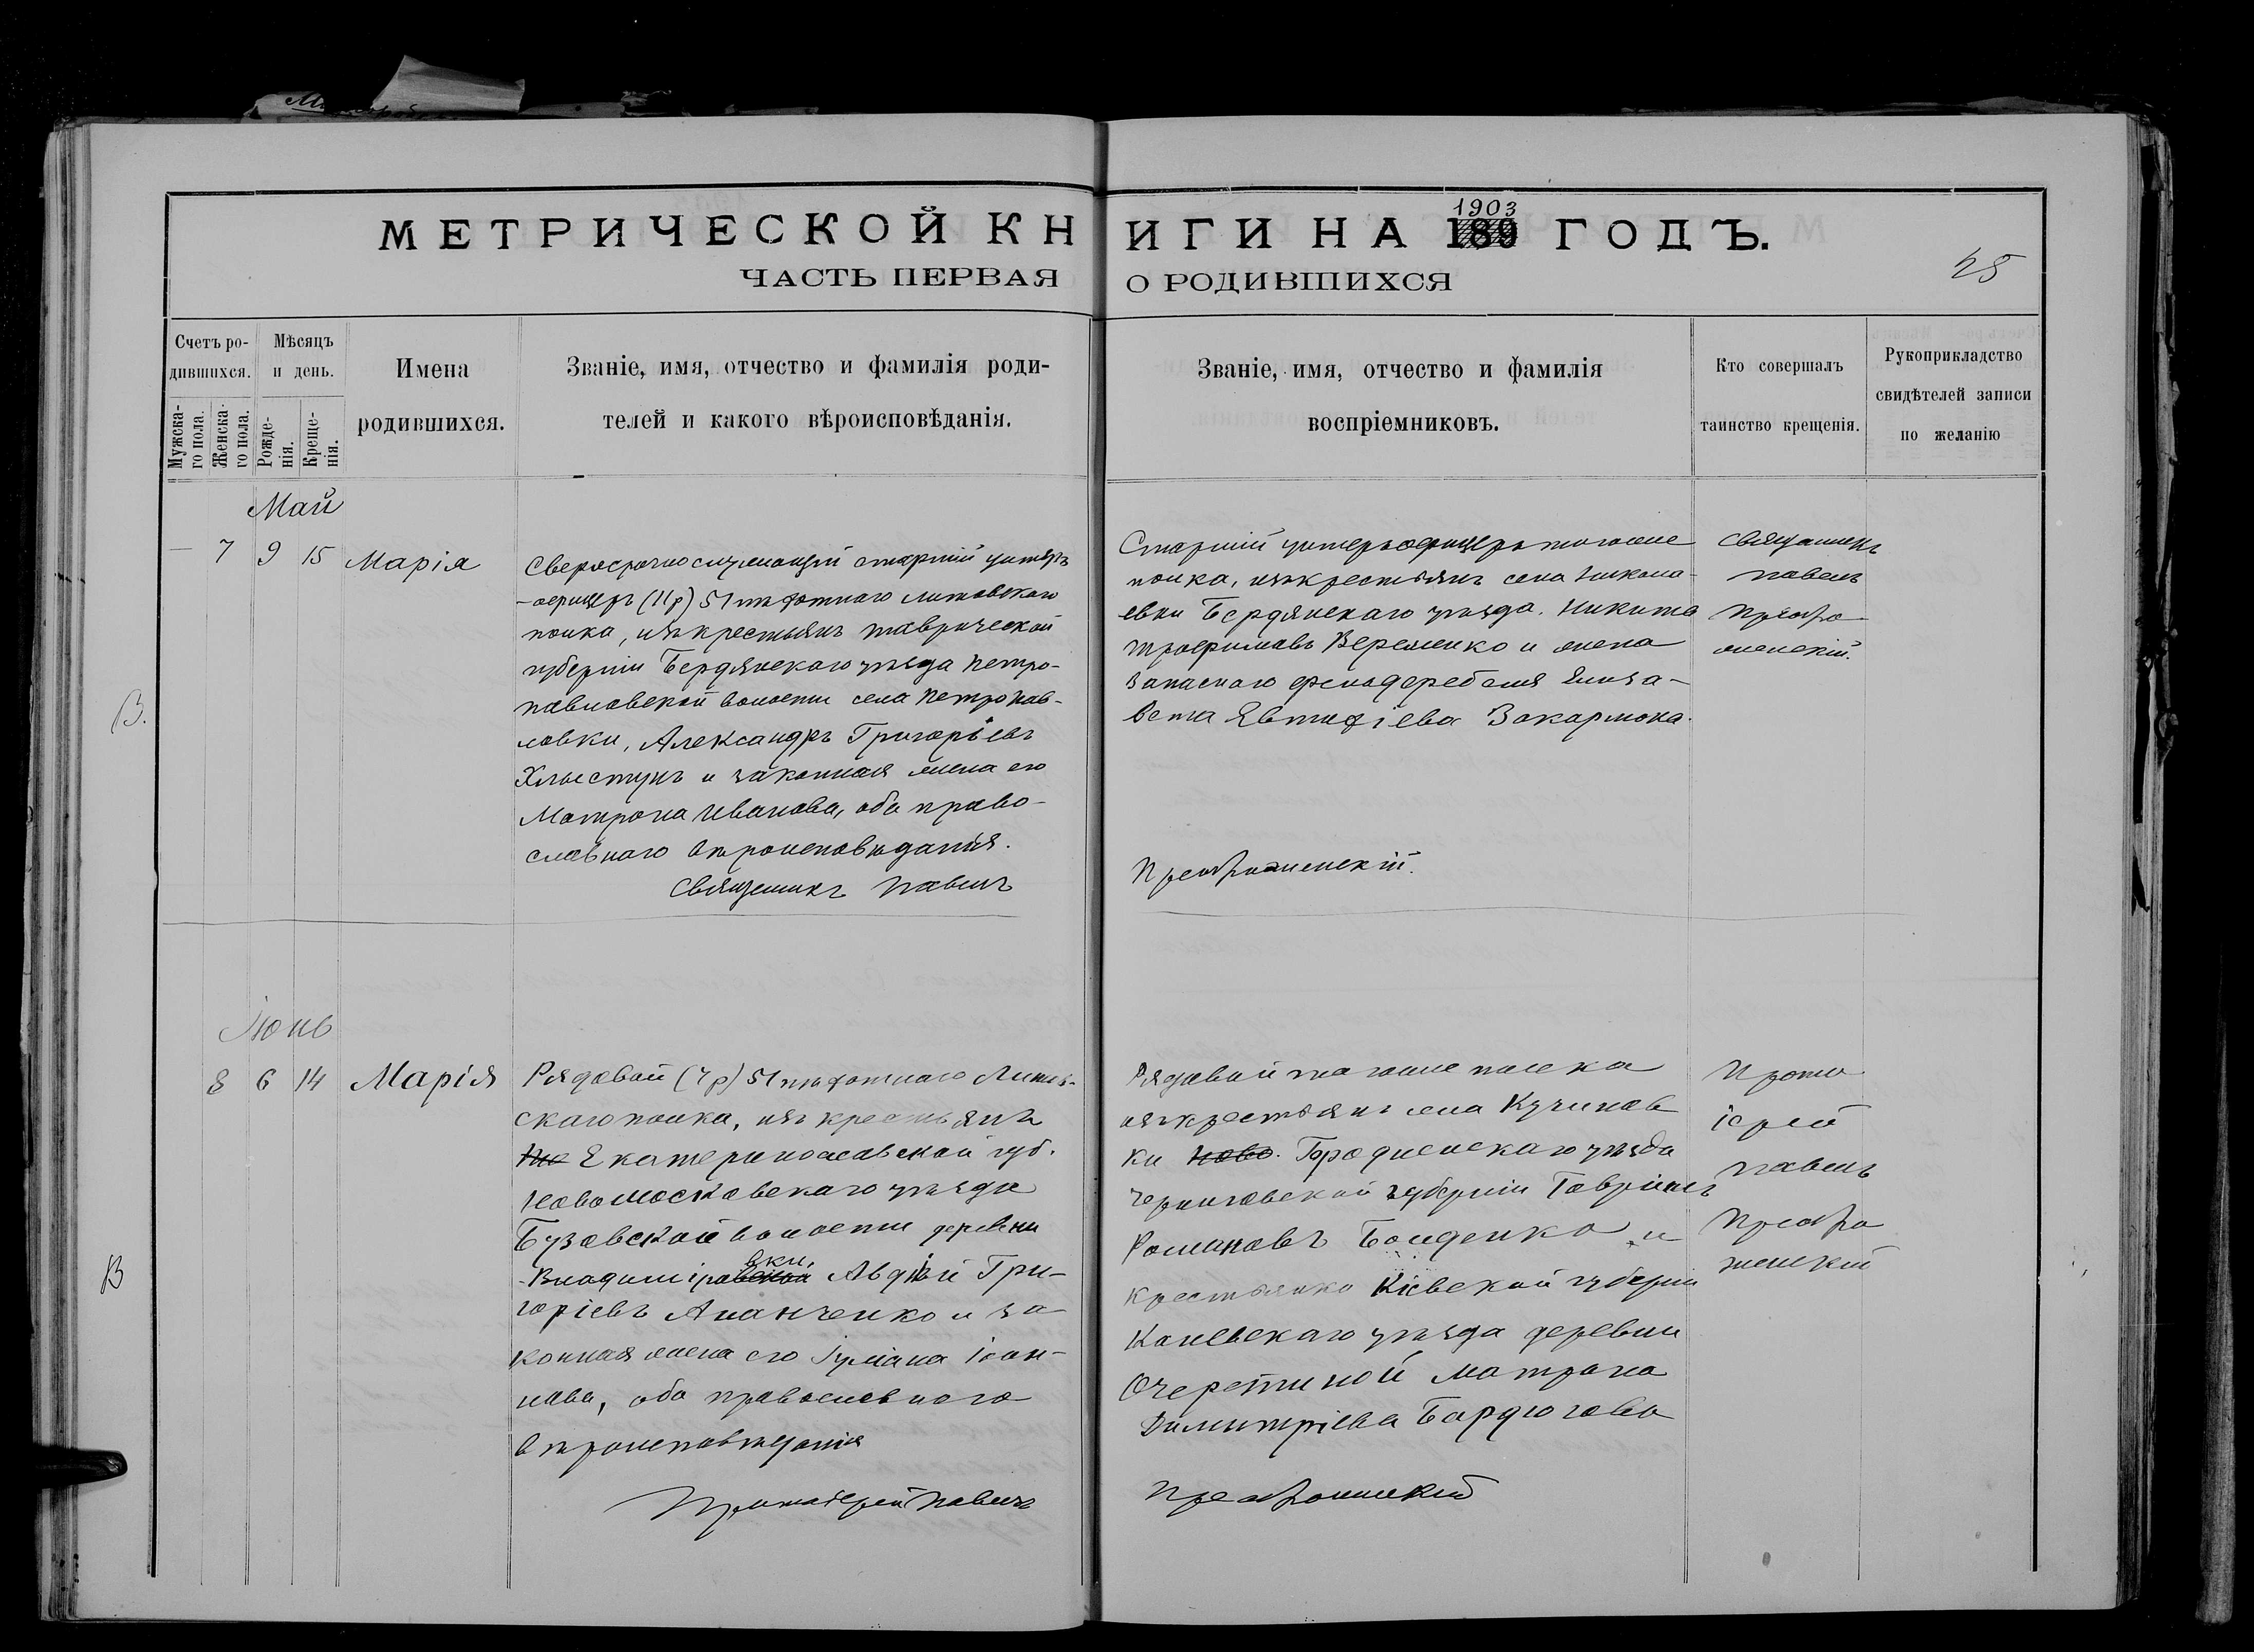 МЕТРИЧЕСКОЙ КНИГИ НА 189 1903 ГОДЪ.
ЧАСТЬ ПЕРВАЯ О РОДИВШИХСЯ
Счетъ родившихся.
Мужскаго пола.
Женскаго пола.
Мѣсяцъ и день.
Рожденія.
Крещенія.
Имена
родившихся.
Званіе, имя, отчество и фамилія роди-
телей и какого вѣроисповѣданія.
Званіе, имя, отчество и фамилія
воспріемниковъ.
Кто совершалъ
таинство крещенія.
Рукоприкладство
свидѣтелей записи
по желанію
Май
— 7 9 15 Марія
Сверхсрочнослужащій старшій унтеръ
-офицеръ (11 р) 51 пѣхотнаго Литовскаго
полка, изъ крестьянъ Таврической
губерніи Бердянскаго уѣзда Петро-
павловской волости села Петропав-
ловки, Александръ Григорьевъ
Хлыстунъ и законная жена его
Матрона Иванова, оба право-
славнаго вѣроисповѣданія.
Священникъ Павелъ
Старшій унтеръ-офицеръ того же
полка, изъ крестьянъ села Никола-
евки Бердянскаго уѣзда. Никита
Трофимовъ Веременко и жена
запаснаго фельдфебеля Елиза-
вета Евтихіева Закарлюка.
Преображенскій.
Священникъ
Павелъ
Преобра
женскій.
В.
Іюнь
8 6 14 Марія
Рядовой (4 р) 51 пѣхотнаго Литов-
скаго полка, изъ крестьянъ
Екатеринославской губ.
Новомосковскаго уѣзда
Бузовской волости деревни
Владиміровки, Авдѣй Гри-
горіевъ Ананченко и за
конная жена его Іуліана Іоан-
нова, оба православнаго
вѣроисповѣданія
Протоіерей Павелъ
Рядовой того же полка
изъ крестьянъ села Кучинов
ки Ново. Городненскаго уѣзда
Черниговской губерніи Гавріилъ
Романовъ Бонденко и
крестьянка Кіевской губерніи
Каневскаго уѣзда деревни
Очеретиной Матрона
Димитріева Бардюгова
Преображенскій
Прото
іерей
Павелъ
Преобра
женскій
В